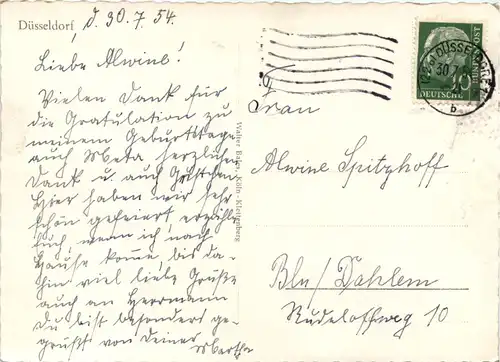 Düsseldorf, d. 30.7.54.
Liebe Alwine!
Vielen Dank für
die Gratulation zu
meinem Geburtstage
auch Meta herzlichen
Dank u. auch
Hier haben wir sehr
schön gefeiert erzähle
Euch, wenn ich nach
Hause komme, bis da-
hin viel liebe Grüße
auch an Herrmann
Du bist besonders ge-
grüßt von Deiner
Martha
Köln-Klettenberg
DÜSSELDORF
DEUTSCHE
b
Frau
Alwine Spitzhoff
Bln/Dahlem
Rudeloffweg 10